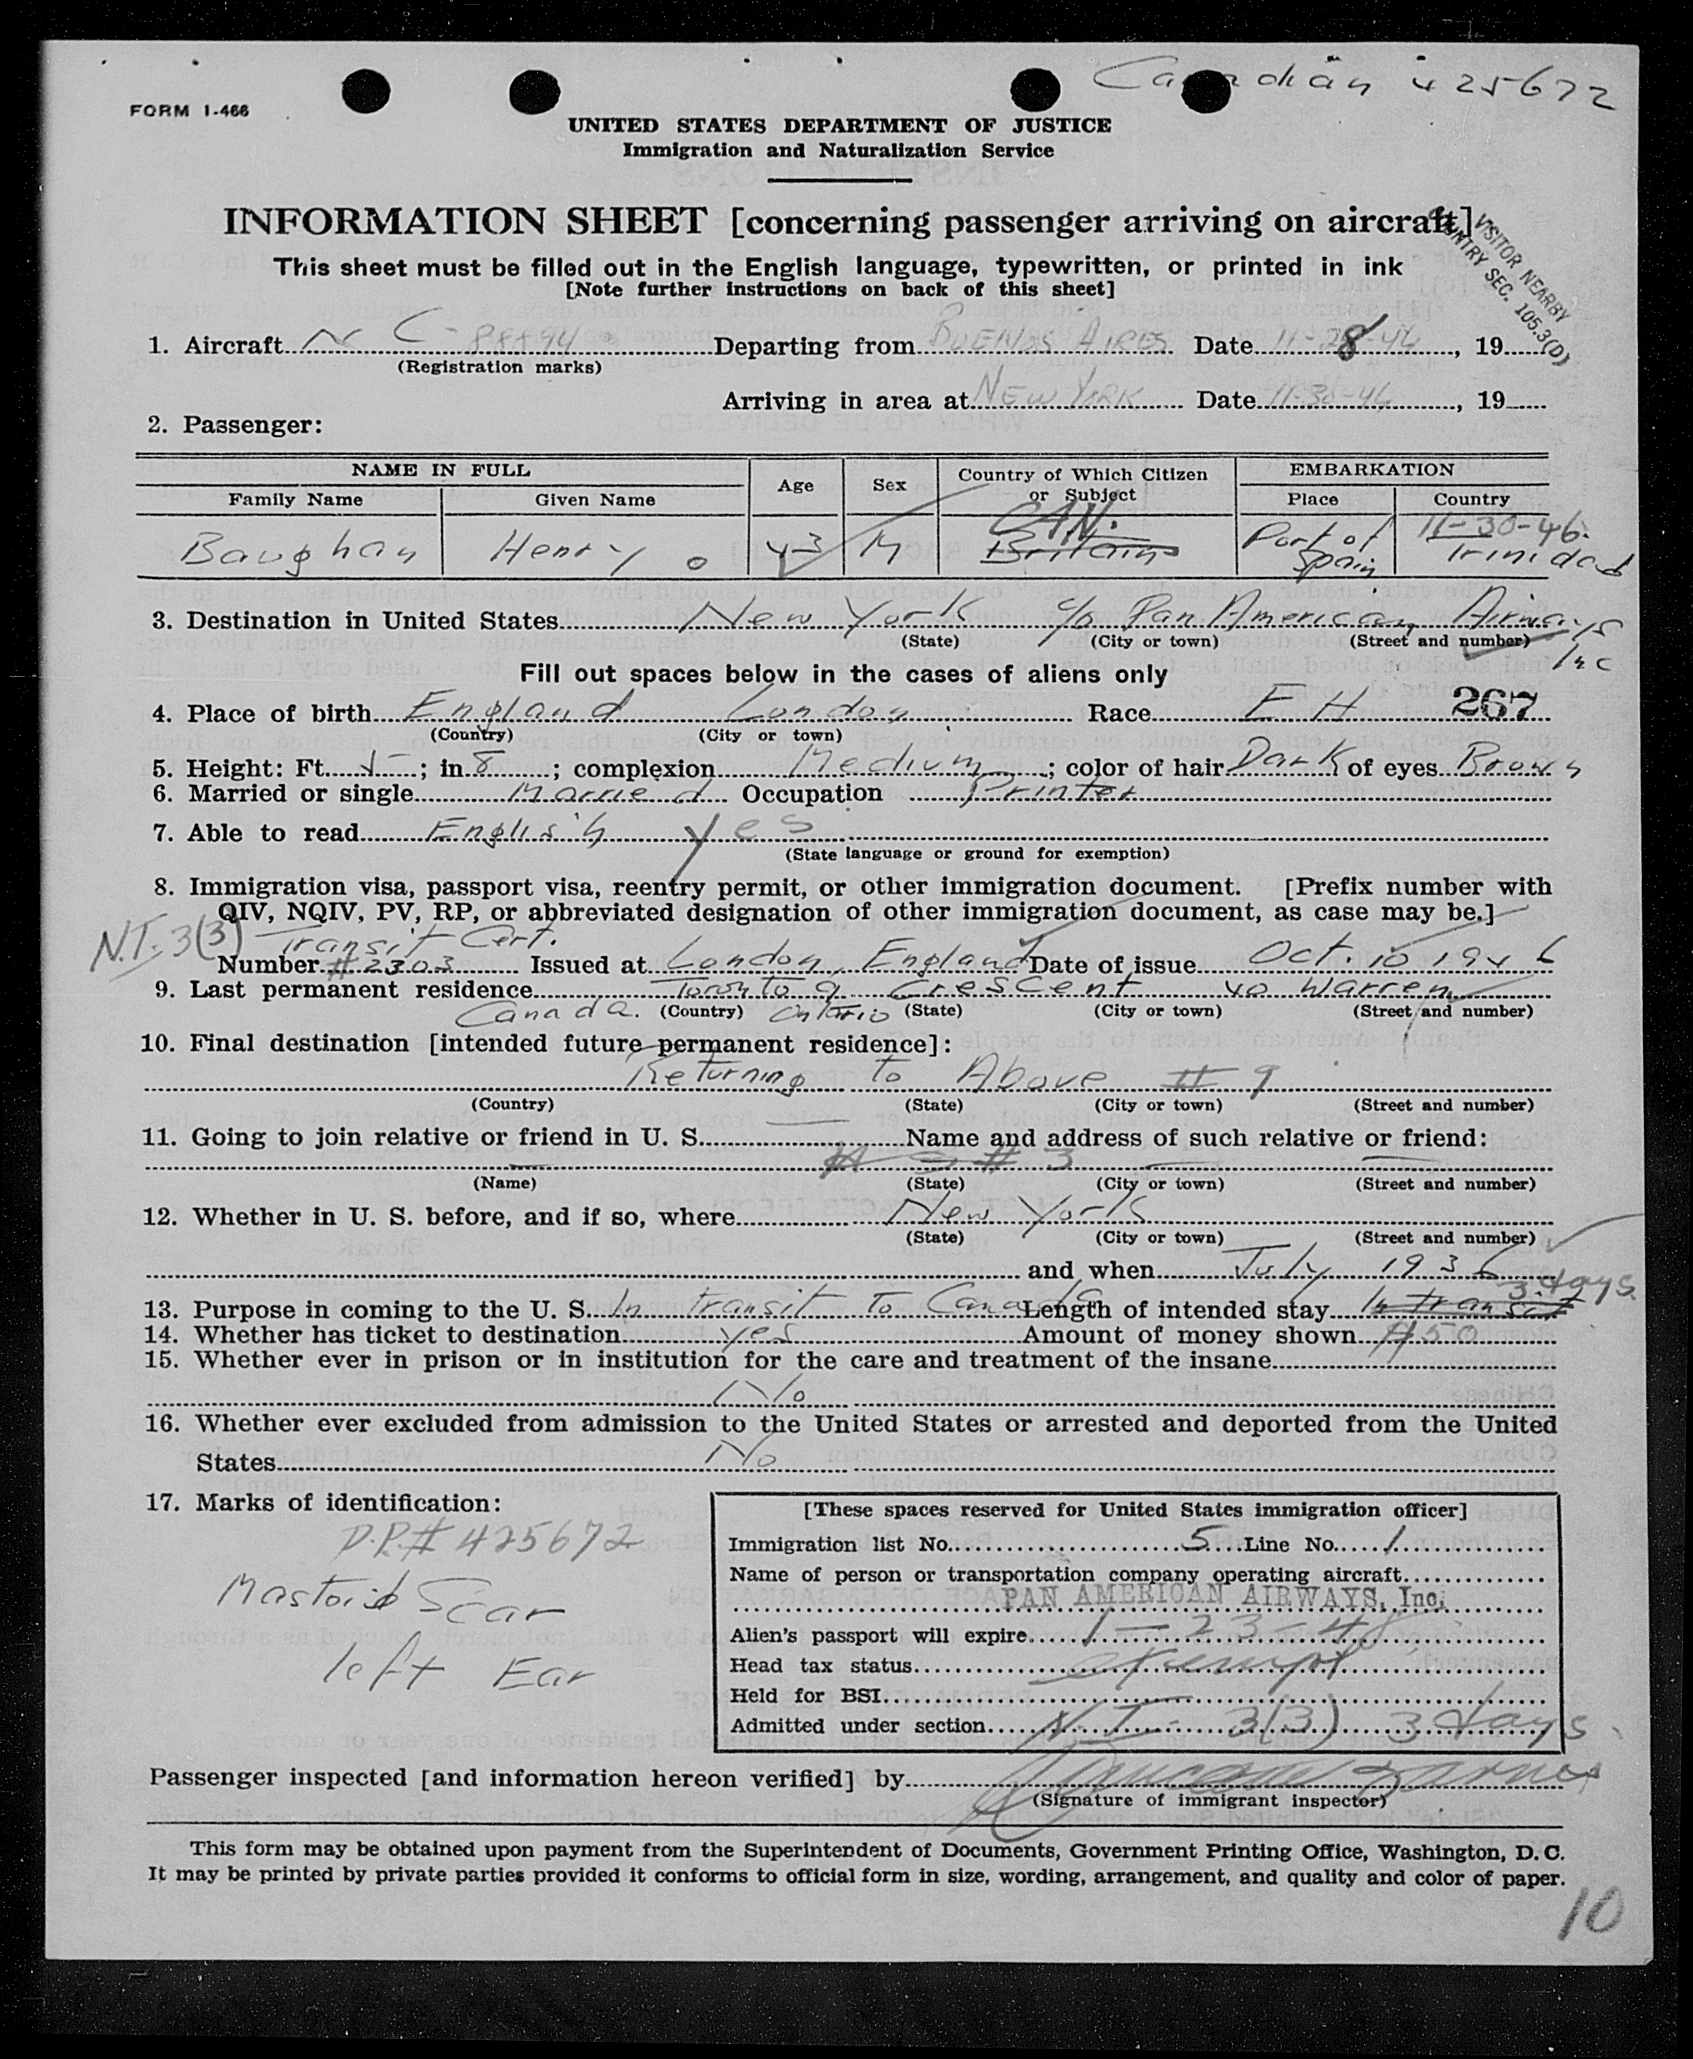 Canadian 425672
FORM I-466
UNITED STATES DEPARTMENT OF JUSTICE
Immigration and Naturalization Service
INFORMATION SHEET [concerning passenger arriving on aircraft]
VISITOR NEARBY
COUNTRY SEC. 105.3(D)
This sheet must be filled out in the English language, typewritten, or printed in ink
[Note further instructions on back of this sheet]
1. Aircraft NC- Departing from BUENOS AIRES Date 11-28-46, 19
(Registration marks)
Arriving in area at NEW YORK Date 11-30-46, 19
2. Passenger:
NAME IN FULL Age Sex Country of Which Citizen or Subject EMBARKATION
Family Name Given Name Place Country
CAN. 11-30-46
Baughan Henry O 43 M Britain Port of Spain Trinidad
3. Destination in United States New York c/o Pan American Airways Inc
(State) (City or town) (Street and number)
Fill out spaces below in the cases of aliens only
4. Place of birth England London Race E H 267
(Country) (City or town)
5. Height: Ft. 5; in. 8; complexion Medium; color of hair Dark of eyes Brown
6. Married or single Married Occupation Printer
7. Able to read English yes
(State language or ground for exemption)
8. Immigration visa, passport visa, reentry permit, or other immigration document. [Prefix number with
QIV, NQIV, PV, RP, or abbreviated designation of other immigration document, as case may be.]
N.T. 3(3) Transit Cert.
Number #2303 Issued at London, England Date of issue Oct. 10 1946
9. Last permanent residence Toronto 9 Crescent 40 Warren
Canada. (Country) Ontario (State) (City or town) (Street and number)
10. Final destination [intended future permanent residence]:
Returning to Above # 9
(Country) (State) (City or town) (Street and number)
11. Going to join relative or friend in U. S. — Name and address of such relative or friend:
# 3
(Name) (State) (City or town) (Street and number)
12. Whether in U. S. before, and if so, where New York
(State) (City or town) (Street and number)
and when July 1936
3 days.
13. Purpose in coming to the U. S. In transit to Canada Length of intended stay In transit
14. Whether has ticket to destination yes Amount of money shown $50
15. Whether ever in prison or in institution for the care and treatment of the insane
No
16. Whether ever excluded from admission to the United States or arrested and deported from the United
States No
17. Marks of identification:
P.P.# 425672
Mastoid Scar
left Ear
[These spaces reserved for United States immigration officer]
Immigration list No. 5 Line No. 1
Name of person or transportation company operating aircraft
PAN AMERICAN AIRWAYS, Inc.
Alien's passport will expire 1-23-48
Head tax status exempt
Held for BSI
Admitted under section N.T. 3(3) 3 days
Passenger inspected [and information hereon verified] by
(Signature of immigrant inspector)
This form may be obtained upon payment from the Superintendent of Documents, Government Printing Office, Washington, D. C.
It may be printed by private parties provided it conforms to official form in size, wording, arrangement, and quality and color of paper.
10